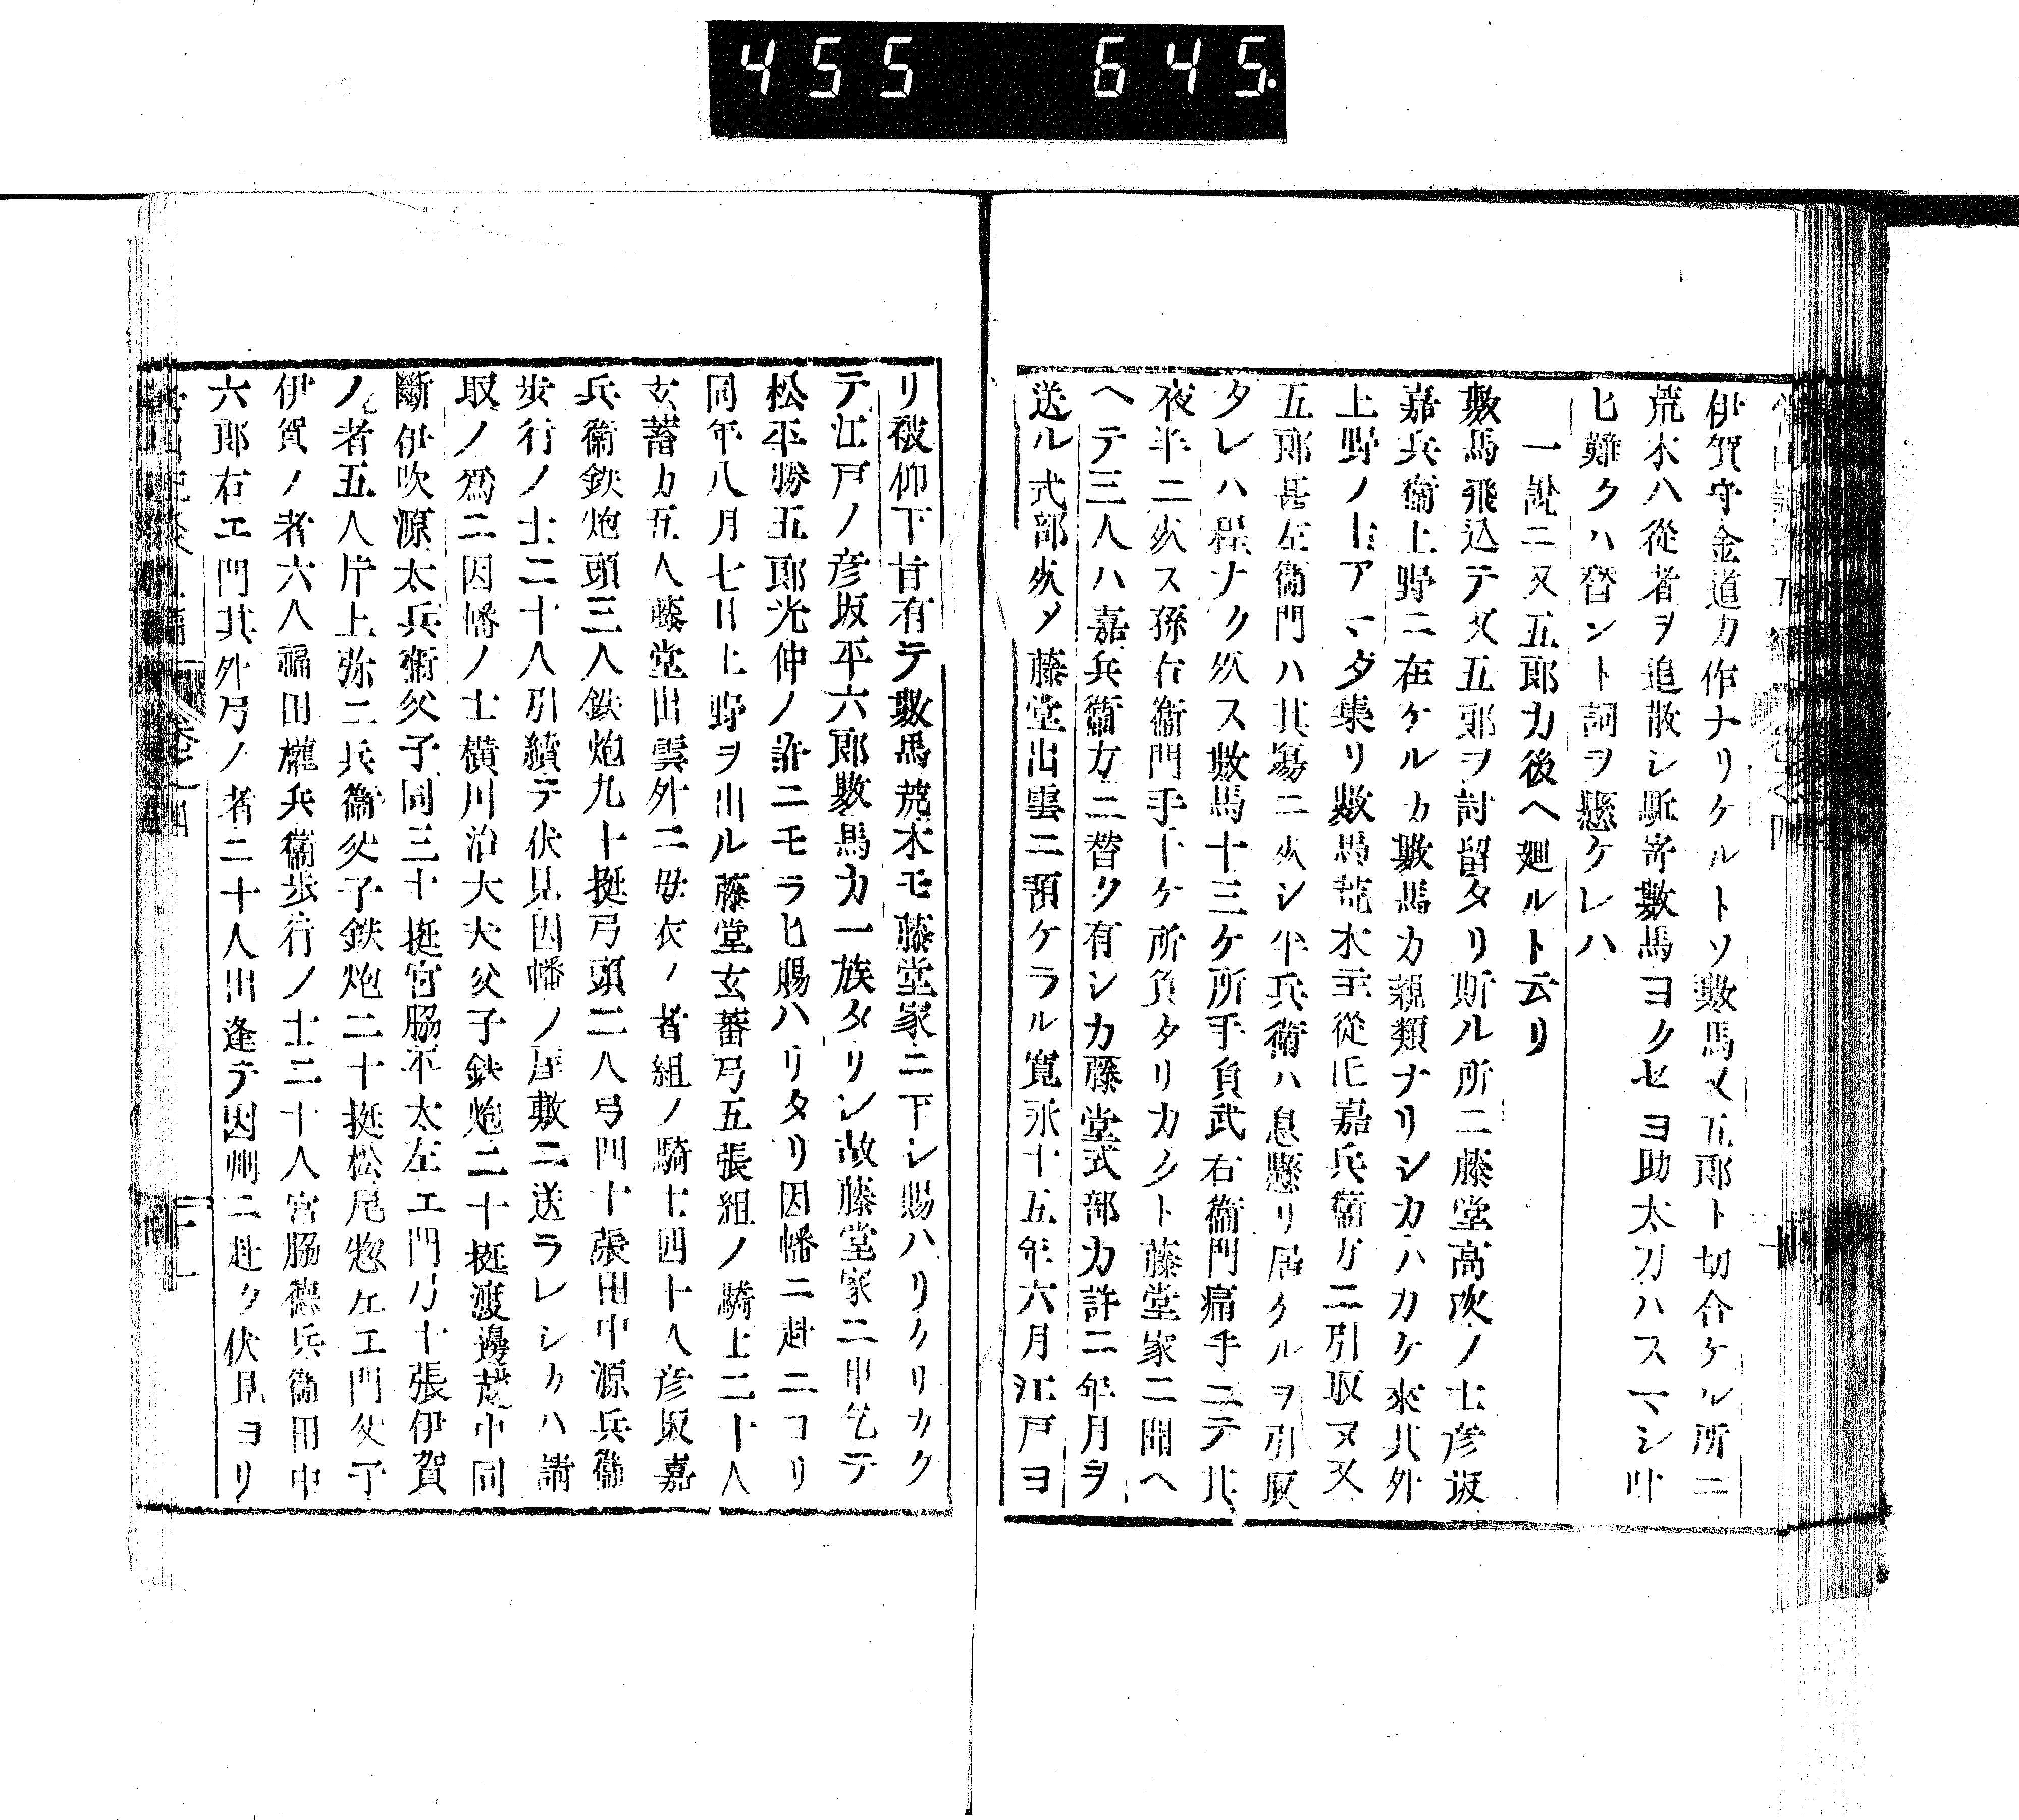 455 645.
伊賀守金道カ作ナリケルトソ數馬又五郎ト切合ケル所ニ
荒木ハ從者ヲ追散シ駈寄數馬ヨクセヨ助太刀ハスマシ叶
ヒ難クハ替ント詞ヲ懸ケレハ
一説ニ又五郎カ後ヘ廻ルト云リ
數馬飛込テ又五郎ヲ討留タリ斯ル所ニ藤堂高次ノ士彦坂
嘉兵衞上野ニ在ケルカ數馬カ親類ナリシカハカケ來其外
上野ノ士アマタ集リ數馬荒木主從ヒ嘉兵衞方ニ引取ヌ又
五郎甚左衞門ハ其塲ニ死シ半兵衛ハ息懸リ居タルヲ引取
タレハ程ナク死ス數馬十三ケ所手負武右衞門痛手ニテ其
夜半ニ死ス孫右衞門手下ケ所負タリカクト藤堂家ニ聞ヘ
ヘテ三人ハ嘉兵衞方ニ替ク有シカ藤堂式部カ許ニ年月ヲ
送ル式部死メ藤堂出雲ニ預ケラル寛永十五年六月江戸ヨ
リ被仰下旨有テ數馬荒木モ藤堂家ニ下シ賜ハリケリカク
テ江戸ノ彦坂平六郎數馬カ一族タリシ故藤堂家ニ申乞テ
松平勝五郎光仲ノ許ニモラヒ賜ハリタリ因幡ニ赴ニコリ
同年八月七日上野ヲ出ル藤堂玄蕃弓五張組ノ騎士二十人
玄蕃カ五人藤堂出雲外ニ母衣ノ者組ノ騎士四十人彦坂嘉
兵衞鉄炮頭三人鉄炮九十挺弓頭二人弓四十張田中源兵衞
歩行ノ士二十人引續テ伏見因幡ノ屋敷ニ送ラレシケハ請
取ノ爲ニ因幡ノ士横川治大夫父子鉄炮二十挺渡邊越中同
斷伊吹源太兵衞父子同三十挺宮脇不太左エ門弓十張伊賀
ノ者五人片上弥二兵衞父子鉄炮二十挺松尾惣左エ門父子
伊賀ノ者六人福田權兵衞歩行ノ士二十人宮脇德兵衞田中
六郎右エ門其外弓ノ者二十人出逢テ因州ニ赴ク伏見ヨリ